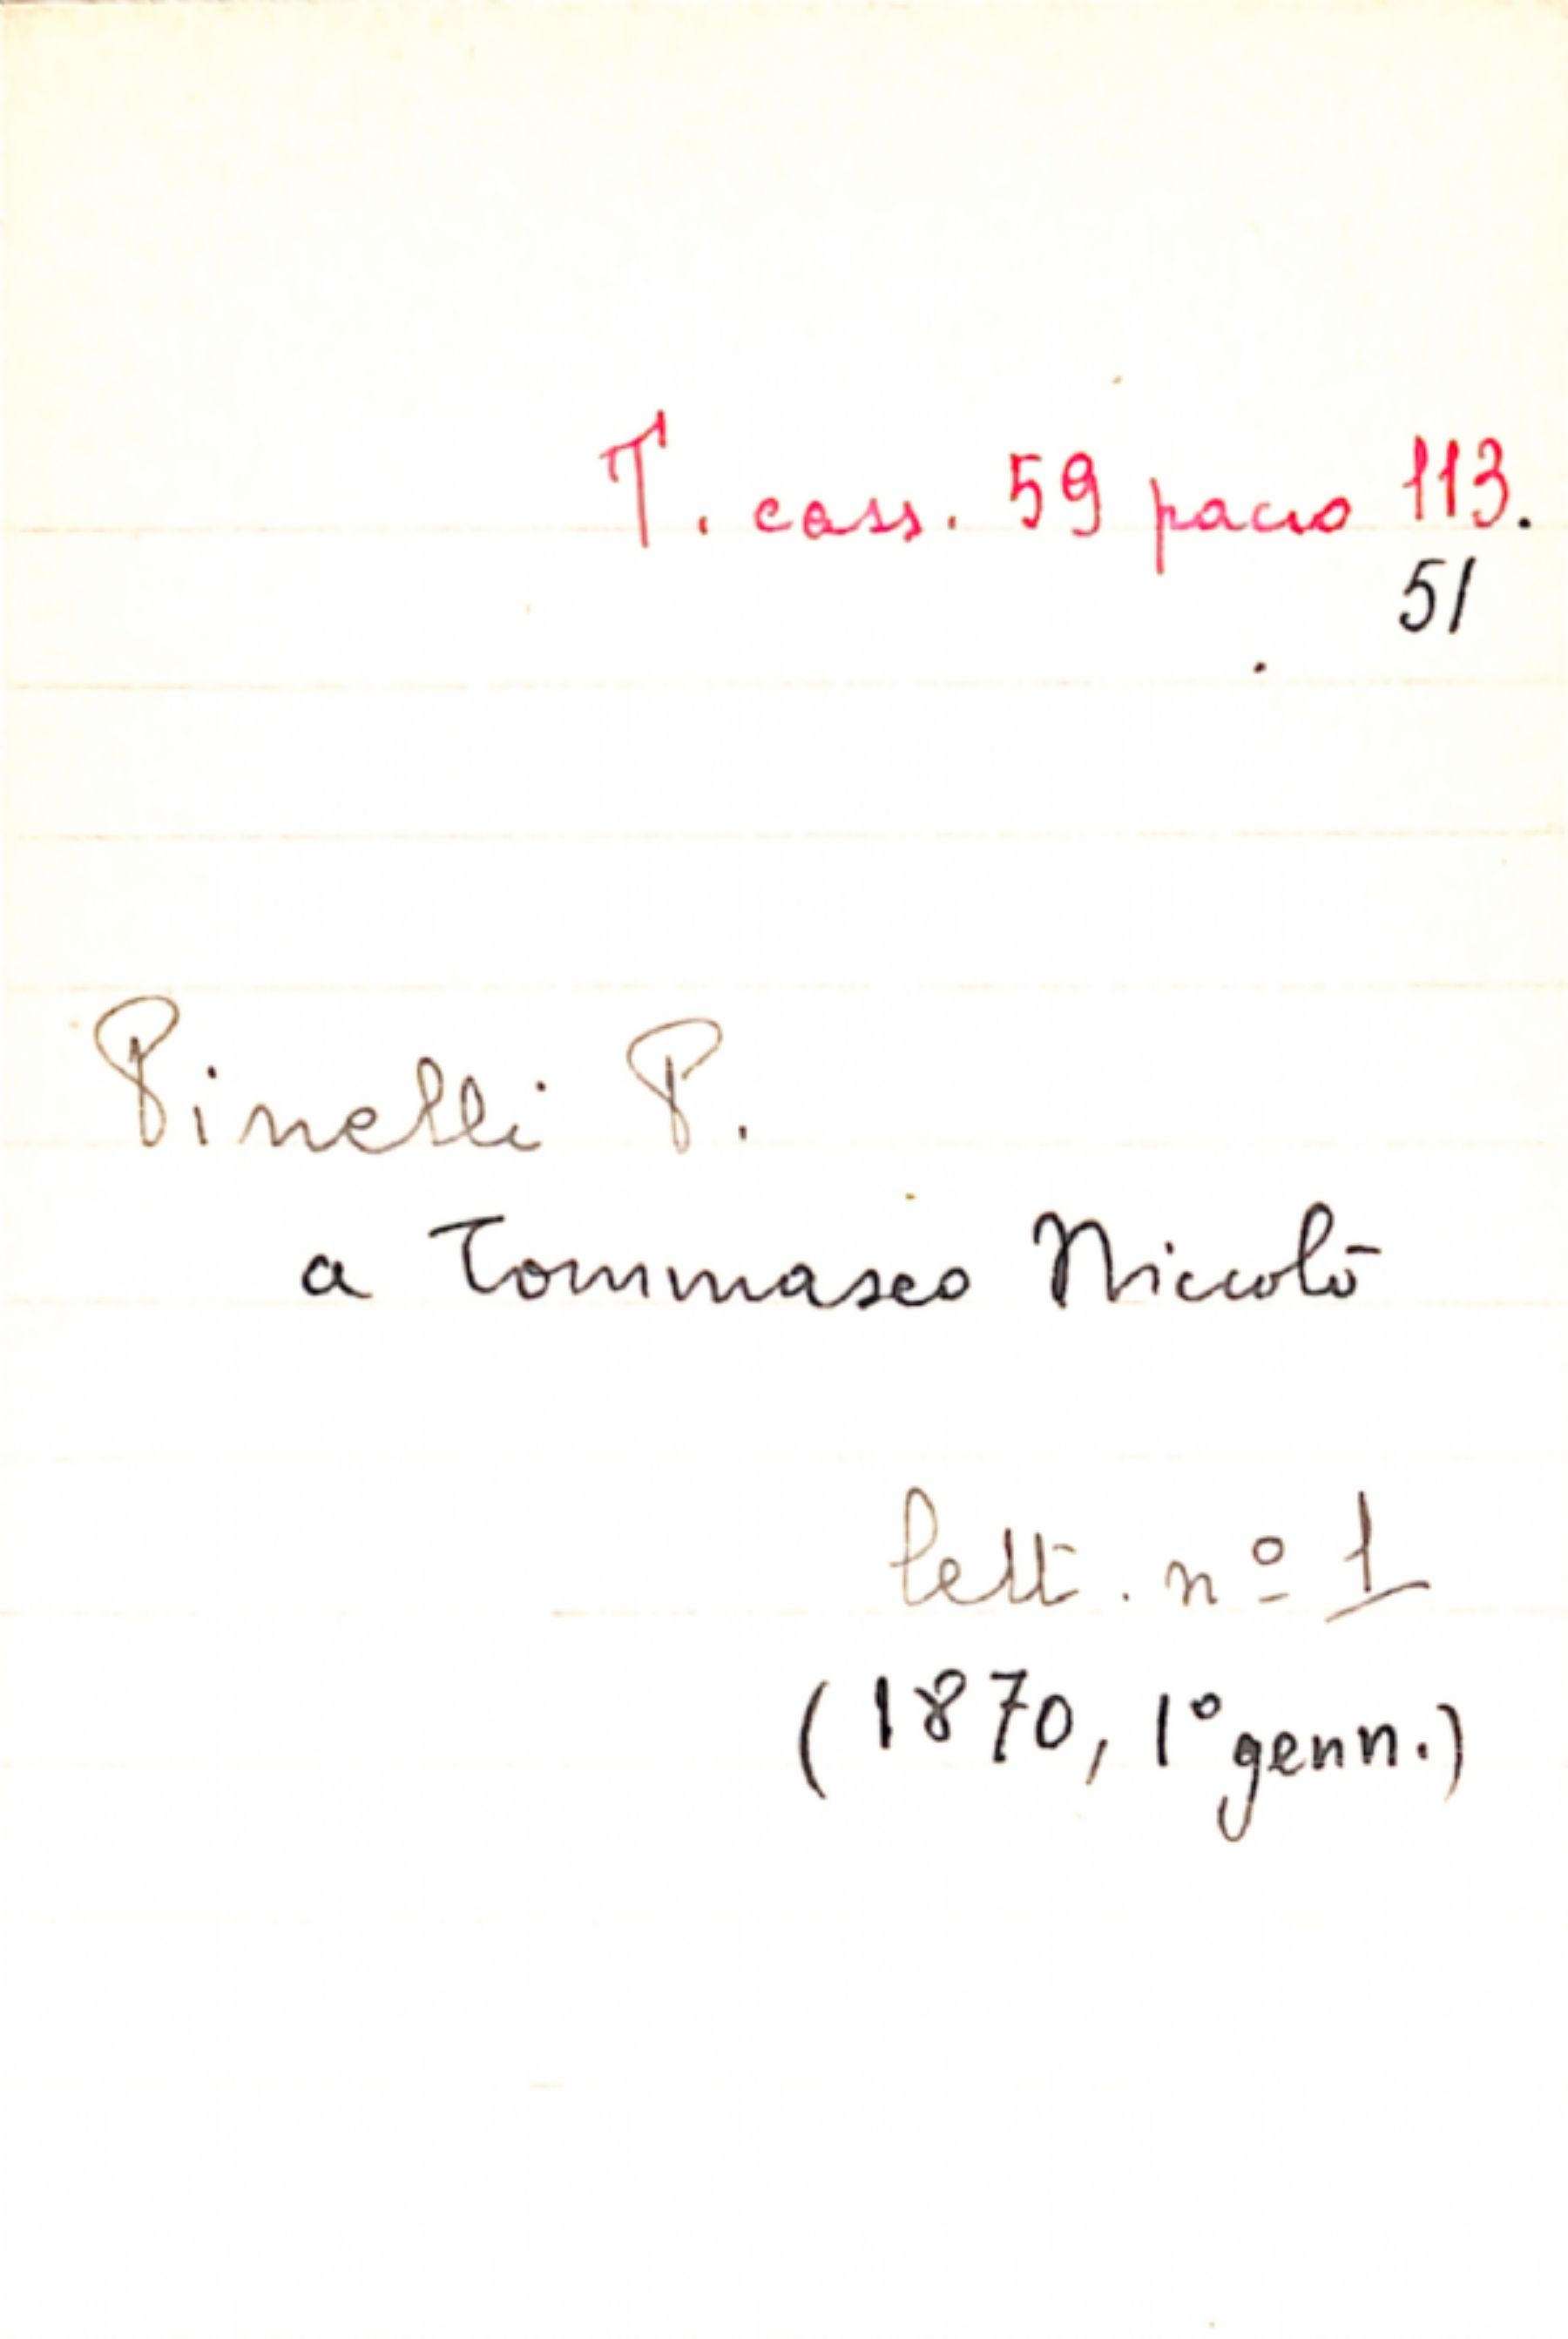 T. cass. 59 pacco 113.
51
Pinelli P.
a Tommaseo Niccolò
lett. nº 1
(1870, 1º genn.)